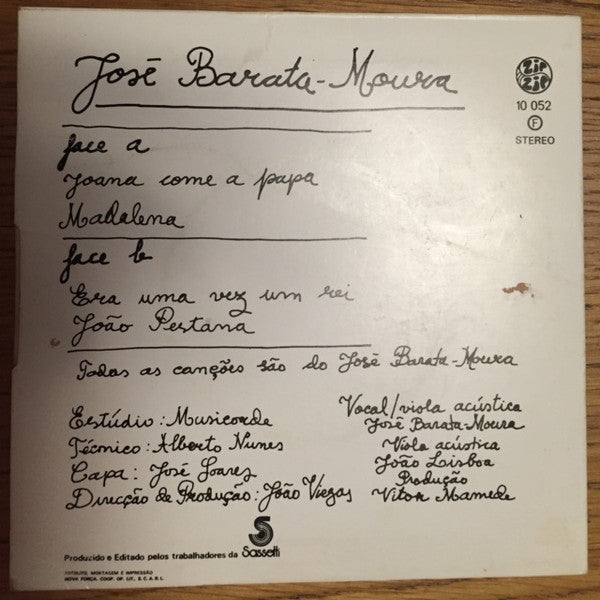 José Barata-Moura
ZIP ZIP
10 052
F
STEREO
face a
Joana come a papa
Madalena
face b
Era uma vez um rei
João Pestana
Todas as canções são do José Barata-Moura
Estúdio: Musicorde
Técnico: Alberto Nunes
Capa: José Soares
Direcção de Produção: João Viegas
Vocal/viola acústica
José Barata-Moura
Viola acústica
João Lisboa
Produção
Vitor Mamede
Produzido e Editado pelos trabalhadores da Sassetti
FOTOLITO, MONTAGEM E IMPRESSÃO
NOVA FORÇA, COOP. OP. LIT., S.C.A.R.L.